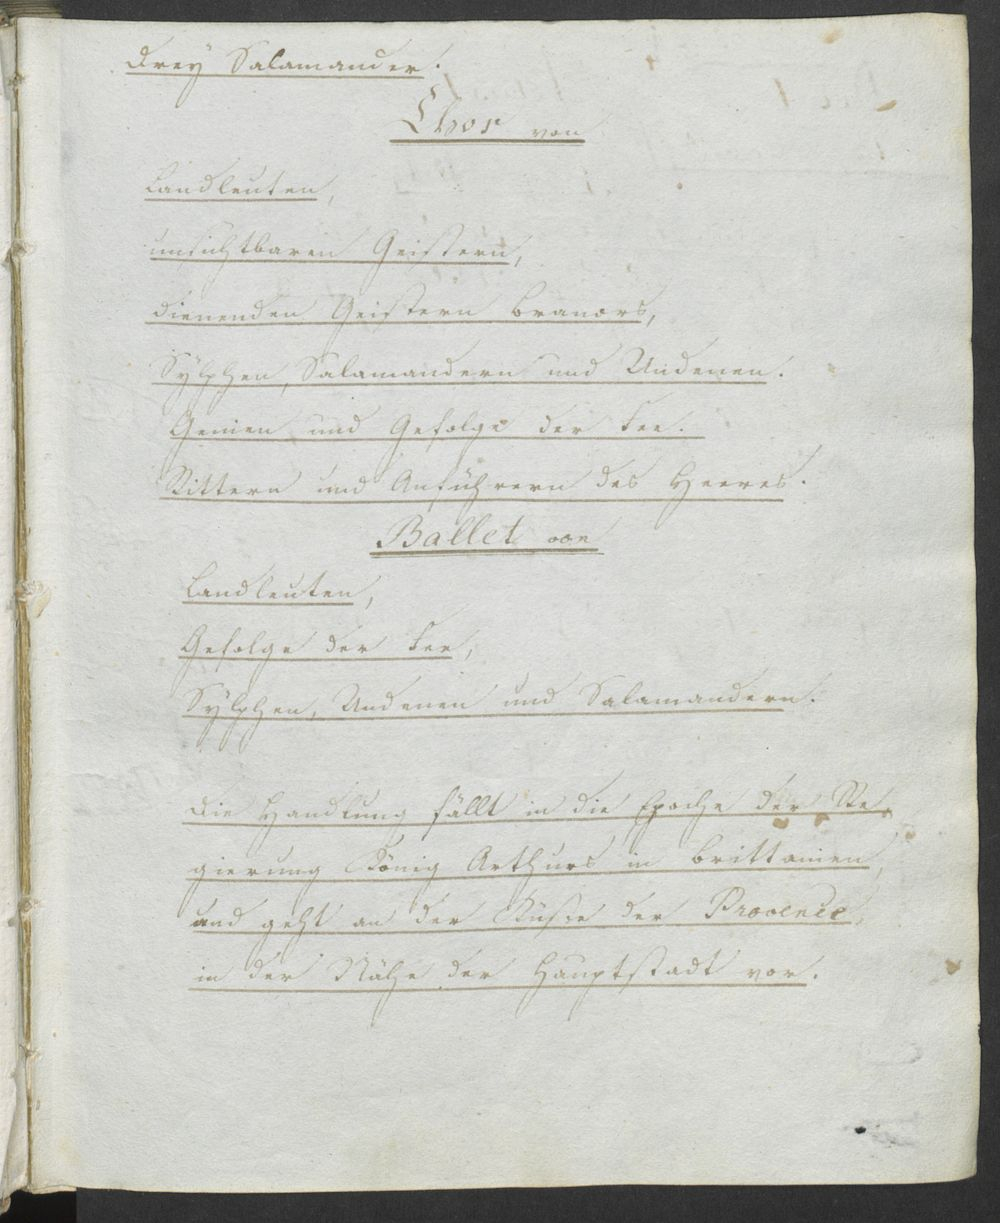 Drey Salamander.
Chor von
Landleuten,
unsichtbaren Geistern,
dienenden Geistern Branors,
Sylphen, Salamandern und Undenen.
Genien und Gefolge der Fee.
Rittern und Anführern des Heeres.
Ballet von
Landleuten,
Gefolge der Fee,
Sylphen, Undenen und Salamandern.
Die Handlung fällt in die Epoche der Re-
gierung König Arthurs in Brittanien,
und geht an der Küste der Provence,
in der Nähe der Hauptstadt vor.